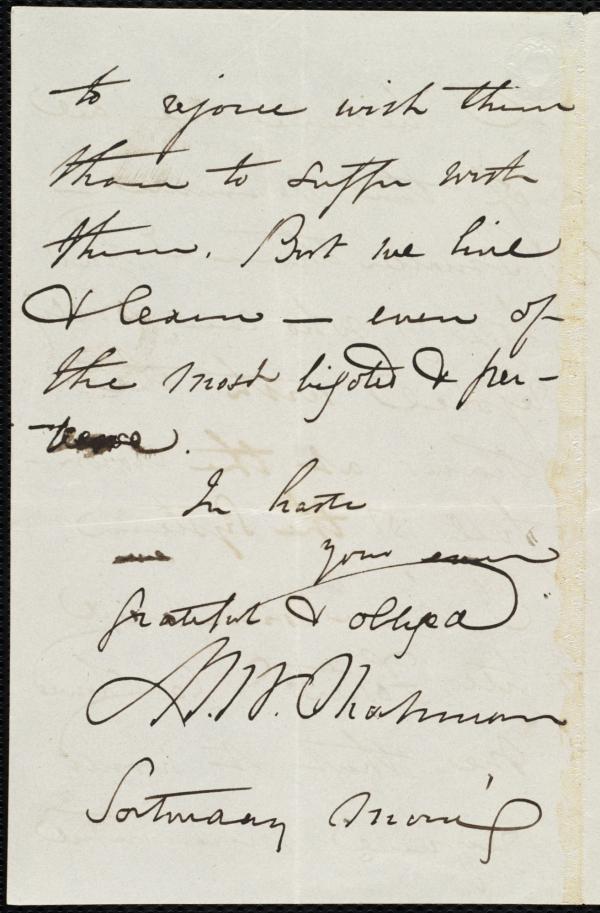 to rejoice with them
than to suffer with
them. But we live
& learn — even of
the most bigoted & per-
verse.
In haste
your ever
grateful & obliged
Chapman
Saturday Morn'g